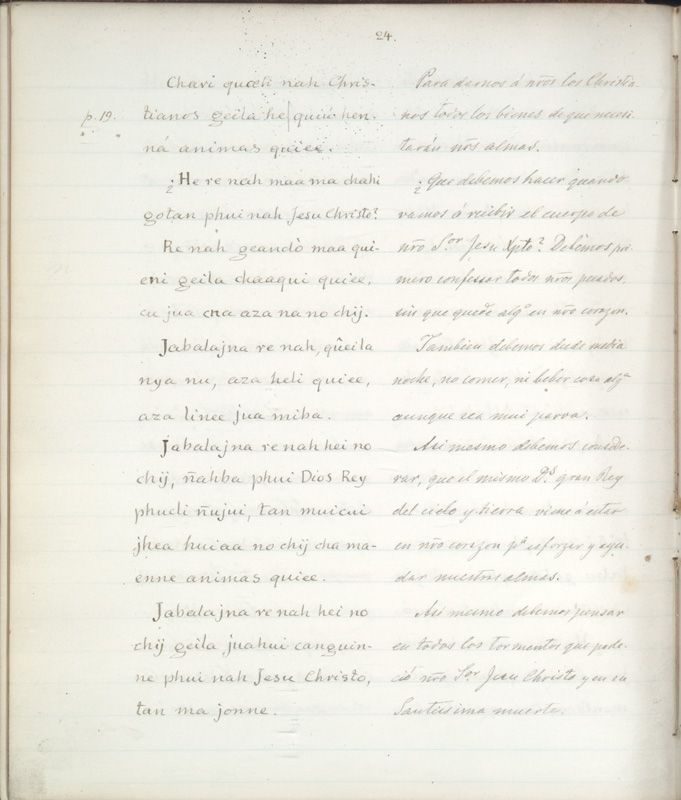 24.
Chari quœti nah Chris-
p. 19. tianos geila he|quiú hen-
ná animas quiee.
¿He re nah maa ma chahi
gotan phui nah Jesu Christo?
Re nah geandò maa qui-
eni geila chaaqui quiee,
cu jua cna aza na no chij.
Jabalajna re nah, qûeila
nya nu, aza heli quiee,
aza linee jua miba.
Jabalajna re nah hei no
chij, ñahba phui Dios Rey
phucli ñujui, tan muicui
jhea huiaa no chij cha ma-
enne animas quiee.
Jabalajna re nah hei no
chij geila juahui canguin-
ne phui nah Jesu Christo,
tan ma jonne.
Para darnos á nr̃os los Christia
nos todos los bienes de que necesi
tarán nr̃s almas.
¿Que debemos hacer quando
vamos á recibir el cuerpo de
nr̃o S.or Jesu Xpto? Debemos pri
mero confessar todos nr̃os pecados,
sin que quede alg.o en nr̃o corazon.
Tambien debemos desde media
noche, no comer, ni beber cosa alg.a
aunque sea mui parva.
Asi mesmo debemos conside-
rar, que el mismo D.s gran Rey
del cielo y tierra viene á estar
en nr̃o corazon p.a esforzar y ayu
dar nuestras almas.
Asi mesmo debemos pensar
en todos los tormentos que pade-
ció nr̃o S.or Jesu Christo y en su
Santissima muerte.